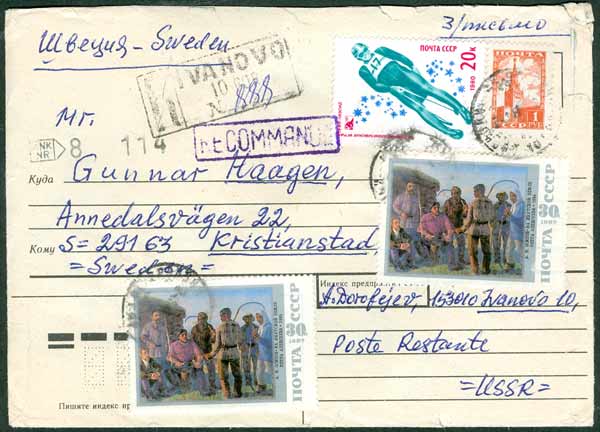 Швеция - Sweden
З/письмо
IVANOVO
10
№ 888
RECOMMANDÉ
ПОЧТА СССР 20к
1980
ПОЧТА
1
РУБ
Mr.
NK
NR
8 114
Куда
Gunnar Haagen,
Annedalsvägen 22,
Кому
S=29163 Kristianstad,
=Sweden=
Индекс предпр
A. Dorofejev, 153010 Ivanovo 10,
Poste Restante
=USSR=
ПОЧТА СССР
30
1987
ПОЧТА СССР
30
1987
Пишите индекс пр